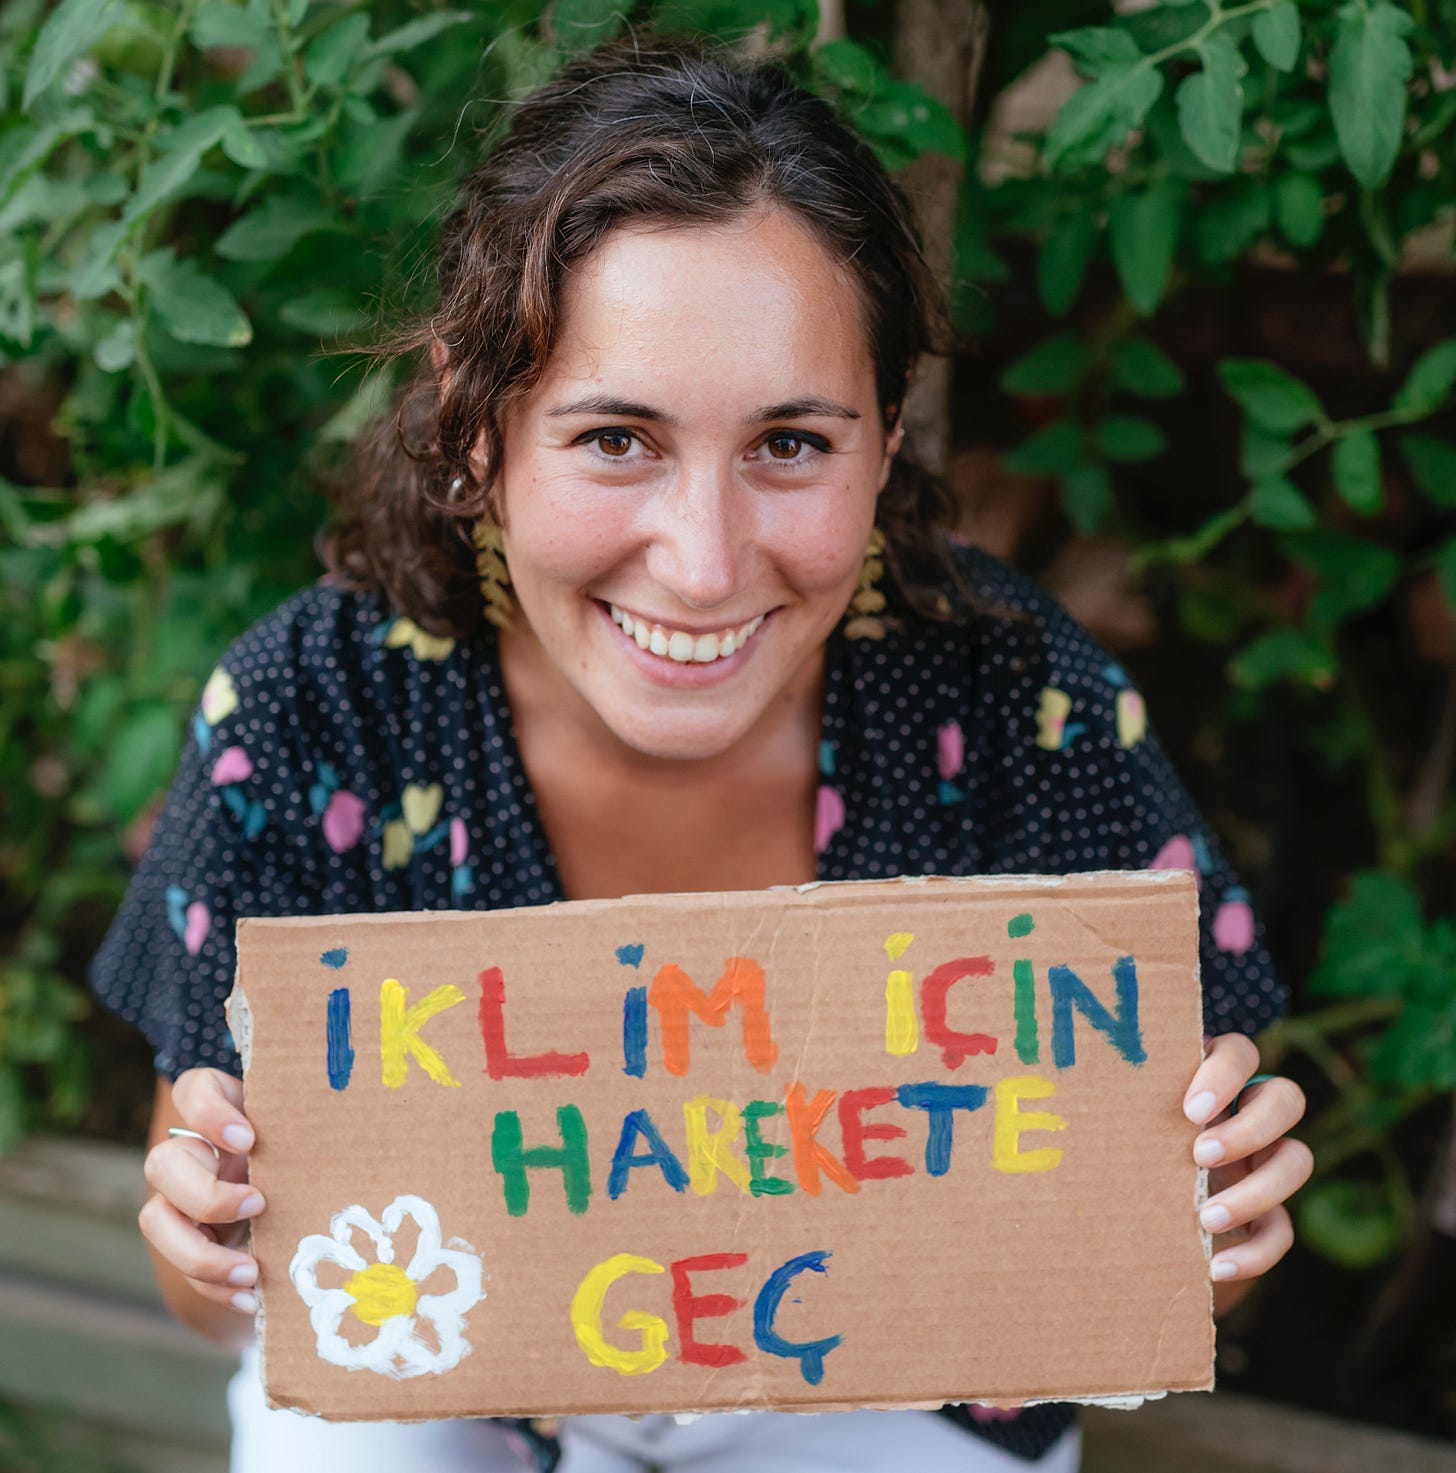 İKLİM İÇİN
HAREKETE
GEÇ